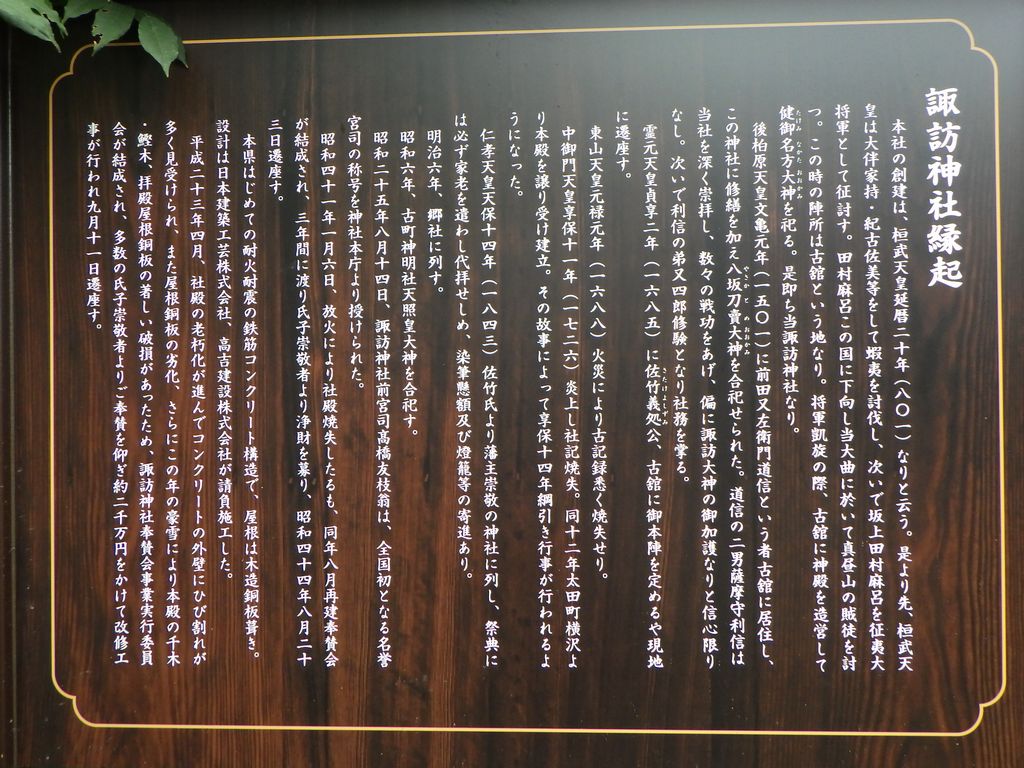 諏訪神社縁起
本社の創建は、桓武天皇延暦二十年（八〇一）なりと云う。是より先、桓武天
皇は大伴家持・紀古佐美等をして蝦夷を討伐し、次いで坂上田村麻呂を征夷大
将軍として征討す。田村麻呂この国に下向し当大曲に於いて真昼山の賊徒を討
つ。この時の陣所は古舘という地なり。将軍凱旋の際、古舘に神殿を造営して
健御名方大神を祀る。是即ち当諏訪神社なり。
後柏原天皇文亀元年（一五〇一）に前田又左衛門道信という者古舘に居住し、
この神社に修繕を加え八坂刀賣大神を合祀せられた。道信の二男薩摩守利信は
当社を深く崇拝し、数々の戦功をあげ、偏に諏訪大神の御加護なりと信心限り
なし。次いで利信の弟又四郎修験となり社務を掌る。
霊元天皇貞享二年（一六八五）に佐竹義処公、古舘に御本陣を定めるや現地
に遷座す。
東山天皇元禄元年（一六八八）火災により古記録悉く焼失せり。
中御門天皇享保十一年（一七二六）炎上し社記焼失。同十二年太田町横沢よ
り本殿を譲り受け建立。その故事によって享保十四年綱引き行事が行われるよ
うになった。
仁孝天皇天保十四年（一八四三）佐竹氏より藩主崇敬の神社に列し、祭典に
は必ず家老を遣わし代拝せしめ、染筆懸額及び燈籠等の寄進あり。
明治六年、郷社に列す。
昭和六年、古町神明社天照皇大神を合祀す。
昭和二十五年八月十四日、諏訪神社前宮司高橋友枝翁は、全国初となる名誉
宮司の称号を神社本庁より授けられた。
昭和四十一年一月六日、放火により社殿焼失したるも、同年八月再建奉賛会
が結成され、三年間に渡り氏子崇敬者より浄財を募り、昭和四十四年八月二十
三日遷座す。
本県はじめての耐火耐震の鉄筋コンクリート構造で、屋根は木造銅板葺き。
設計は日本建築工芸株式会社、高吉建設株式会社が請負施工した。
平成二十三年四月、社殿の老朽化が進んでコンクリートの外壁にひび割れが
多く見受けられ、また屋根銅板の劣化、さらにこの年の豪雪により本殿の千木
・鰹木、拝殿屋根銅板の著しい破損があったため、諏訪神社奉賛会事業実行委員
会が結成され、多数の氏子崇敬者よりご奉賛を仰ぎ約二千万円をかけて改修工
事が行われ九月十一日遷座す。